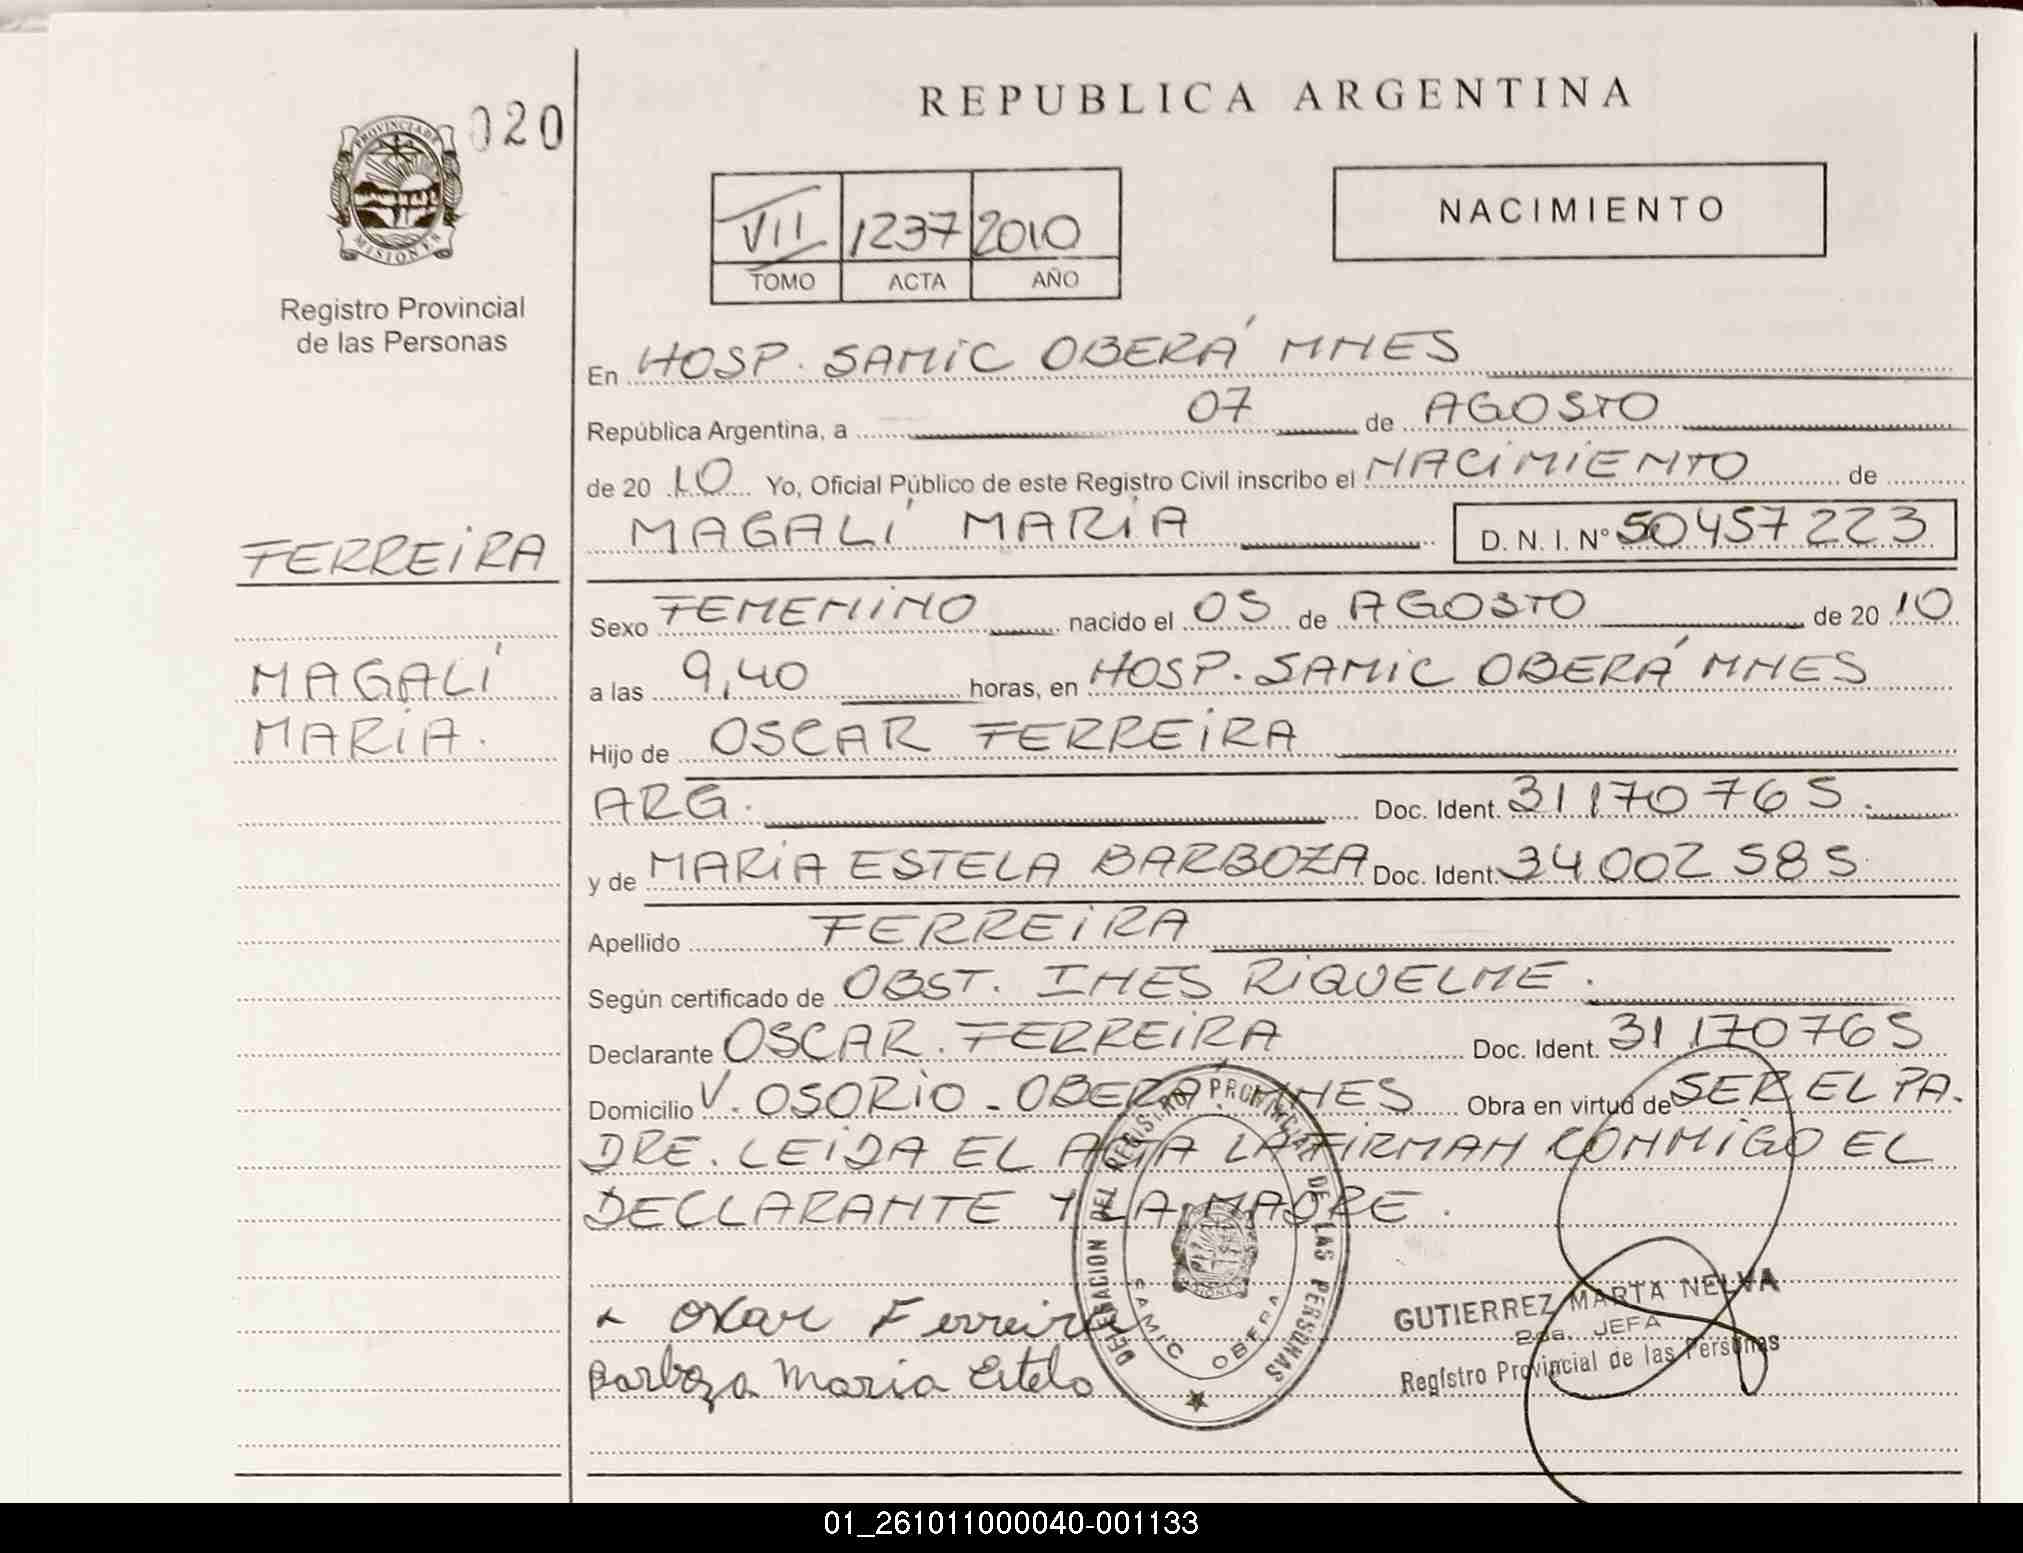 020
PROVINCIA DE
MISIONES
Registro Provincial
de las Personas
FERREIRA
MAGALÍ
MARIA.
REPUBLICA ARGENTINA
VII 1237 2010
TOMO ACTA AÑO
NACIMIENTO
En HOSP. SAMIC OBERÁ MNES
República Argentina, a 07 de AGOSTO
de 20 10 Yo, Oficial Público de este Registro Civil inscribo el NACIMIENTO de
MAGALÍ MARIA D. N. I. N° 50457223
Sexo FEMENINO nacido el 05 de AGOSTO de 20 10
a las 9,40 horas, en HOSP. SAMIC OBERÁ MNES
Hijo de OSCAR FERREIRA
ARG. Doc. Ident. 31170765.
y de MARIA ESTELA BARBOZA Doc. Ident. 34002585
Apellido FERREIRA
Según certificado de OBST. INES RIQUELME.
Declarante OSCAR. FERREIRA Doc. Ident. 31170765
Domicilio V. OSORIO - OBERÁ MNES Obra en virtud de SER EL PA.
DRE. LEIDA EL ACTA LA FIRMAN CONMIGO EL
DECLARANTE Y LA MADRE.
DELEGACION DEL REGISTRO PROVINCIAL DE LAS PERSONAS
SAMIC OBERA
Oscar Ferreira
Barboza Maria Estela
GUTIERREZ MARTA NELVA
2da. JEFA
Registro Provincial de las Personas
01_261011000040-001133